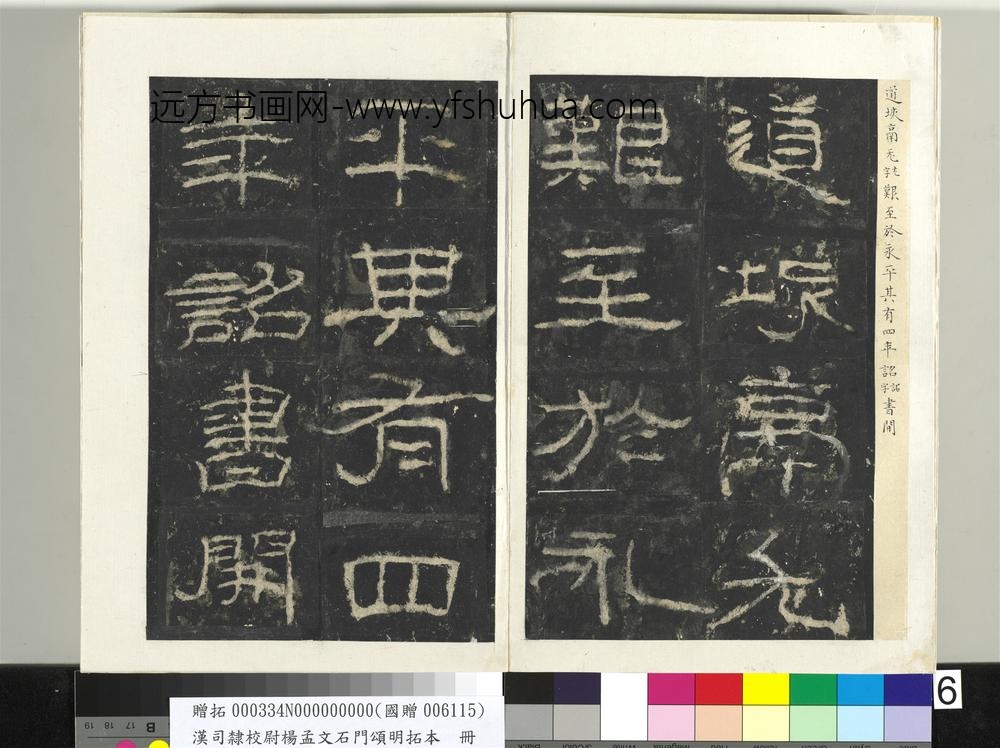 远方书画网-www.yfshuhua.com
道垓鬲尤艱至於永平其有四年詔書開
道垓鬲尤
艱至於永
平其有四
年詔書開
6
贈拓000334N000000000(國贈006115)
漢司隸校尉楊孟文石門頌明拓本 冊